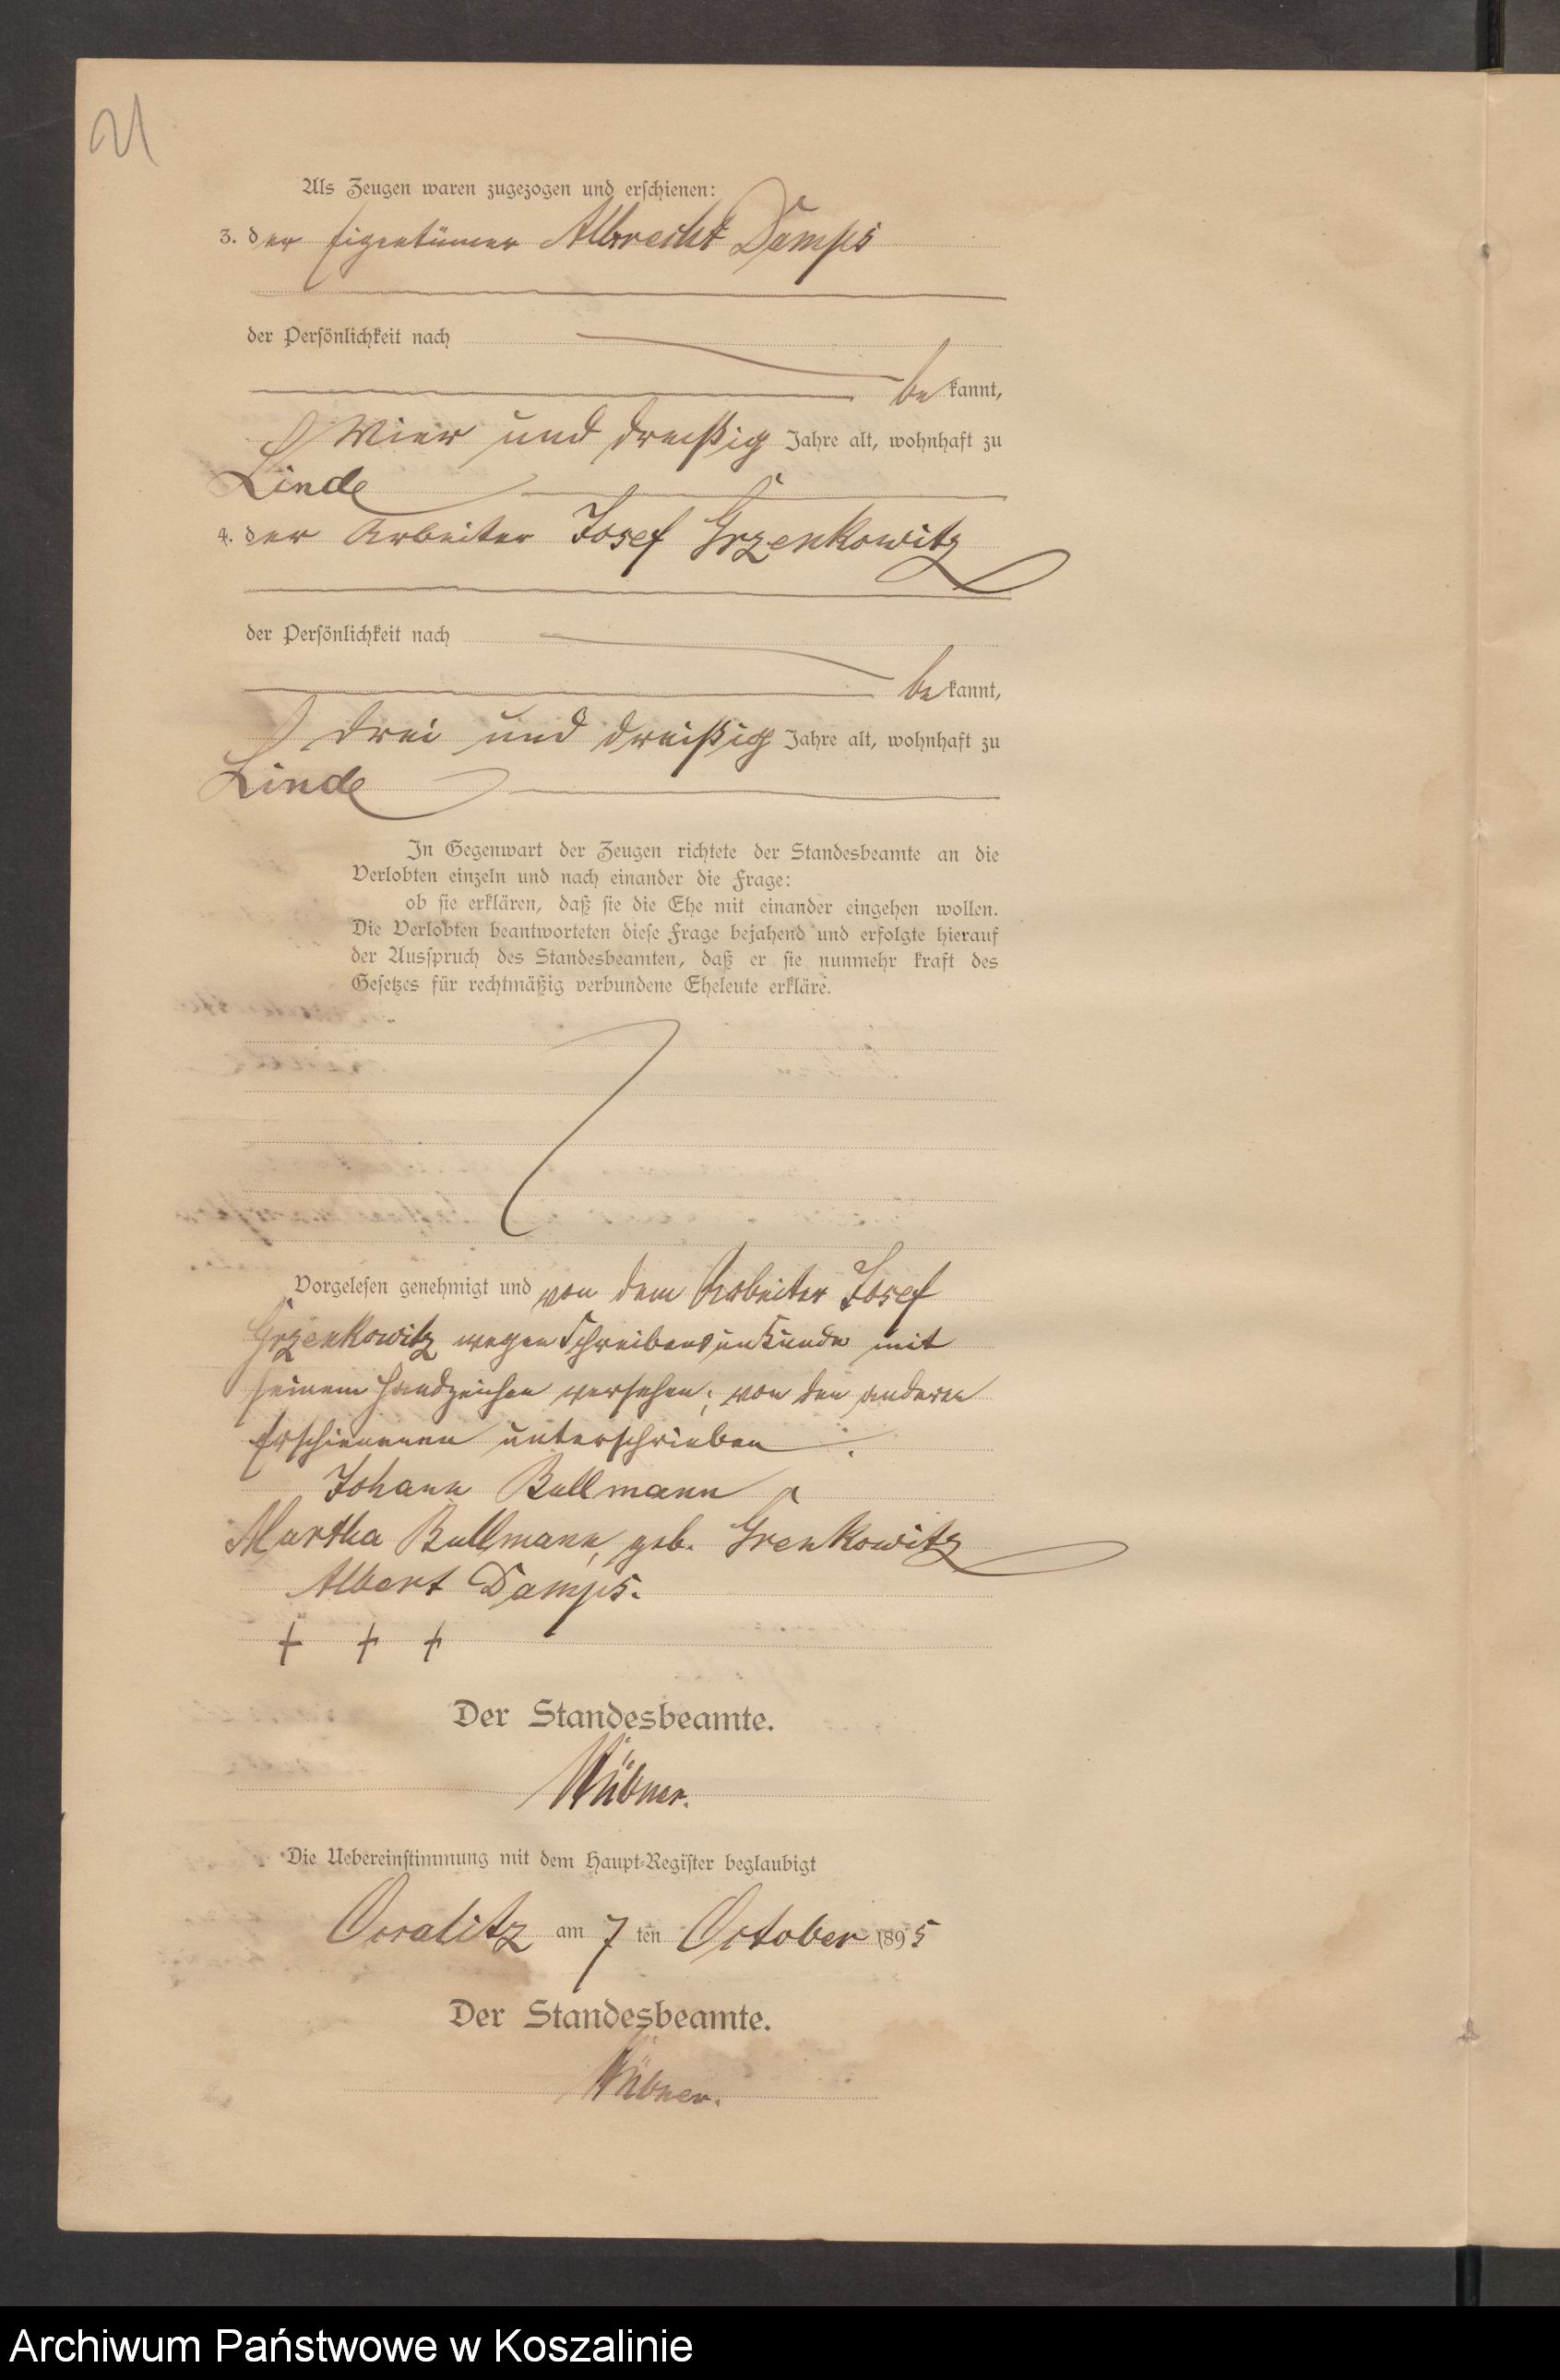 21
Als Zeugen waren zugezogen und erschienen:
3. der Eigentümer Albrecht Damps
der Persönlichkeit nach
bekannt,
Vier und dreißig Jahre alt, wohnhaft zu
Linde
4. der Arbeiter Josef Grzenkowitz
der Persönlichkeit nach
bekannt,
drei und dreißig Jahre alt, wohnhaft zu
Linde
In Gegenwart der Zeugen richtete der Standesbeamte an die
Verlobten einzeln und nach einander die Frage:
ob sie erklären, daß sie die Ehe mit einander eingehen wollen.
Die Verlobten beantworteten diese Frage bejahend und erfolgte hierauf
der Ausspruch des Standesbeamten, daß er sie nunmehr kraft des
Gesetzes für rechtmäßig verbundene Eheleute erkläre.
Vorgelesen genehmigt und von dem Arbeiter Josef
Grzenkowitz wegen Schreibensunkunde mit
seinem Handzeichen versehen; von den anderen
Erschienenen unterschrieben.
Johann Bullmann
Martha Bullmann, geb. Grenkowitz
Albert Damps.
+ + +
Der Standesbeamte.
Wübner.
Die Uebereinstimmung mit dem Haupt-Register beglaubigt
Occalitz am 7ten October 1895
Der Standesbeamte.
Wübner.
Archiwum Państwowe w Koszalinie